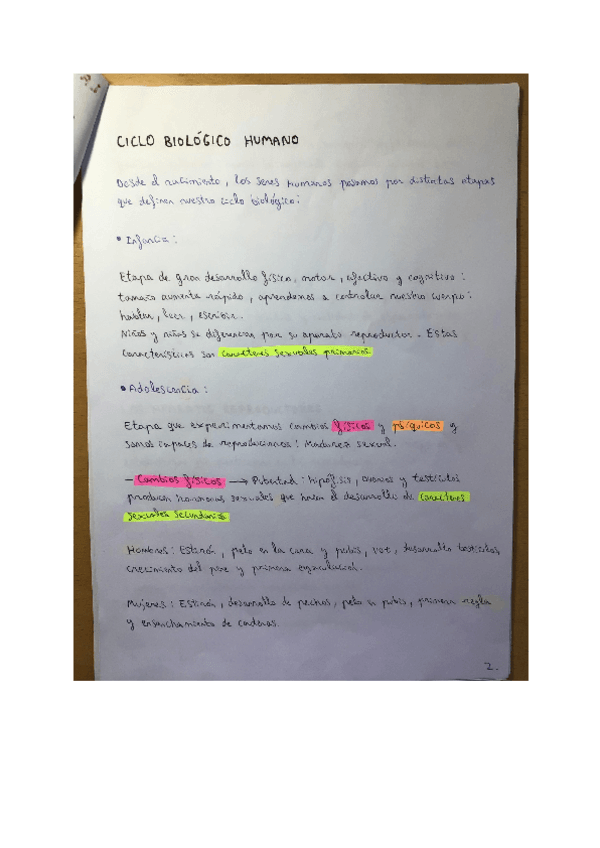 CICLO BIOLÓGICO HUMANO
Desde el nacimiento, los seres humanos pasamos por distintas etapas
que definen nuestro ciclo biológico:
• Infancia:
Etapa de gran desarrollo físico, motor, afectivo y cognitivo:
tamaño aumenta rápido, aprendemos a controlar nuestro cuerpo:
hablar, leer, escribir.
Niños y niñas se diferencian por su aparato reproductor. Estas
características son caracteres sexuales primarios
• Adolescencia:
Etapa que experimentamos cambios físicos y psíquicos y
somos capaces de reproducirnos: Madurez sexual.
- Cambios físicos → Pubertad: hipófisis, ovarios y testículos
producen hormonas sexuales que hacen el desarrollo de caracteres
sexuales secundarios
Hombres: Estirón, pelo en la cara y pubis, voz, desarrollo testículos,
crecimiento del pene y primera eyaculación.
Mujeres: Estirón, desarrollo de pechos, pelo en pubis, primera regla
y ensanchamiento de caderas.
2.